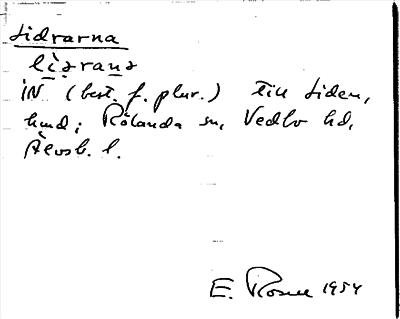 Lidrarna
iN (best. f. plur.) till Liden,
hmd; Rölanda sn, Vedbo hd,
Älvsb. l.
E. 1954